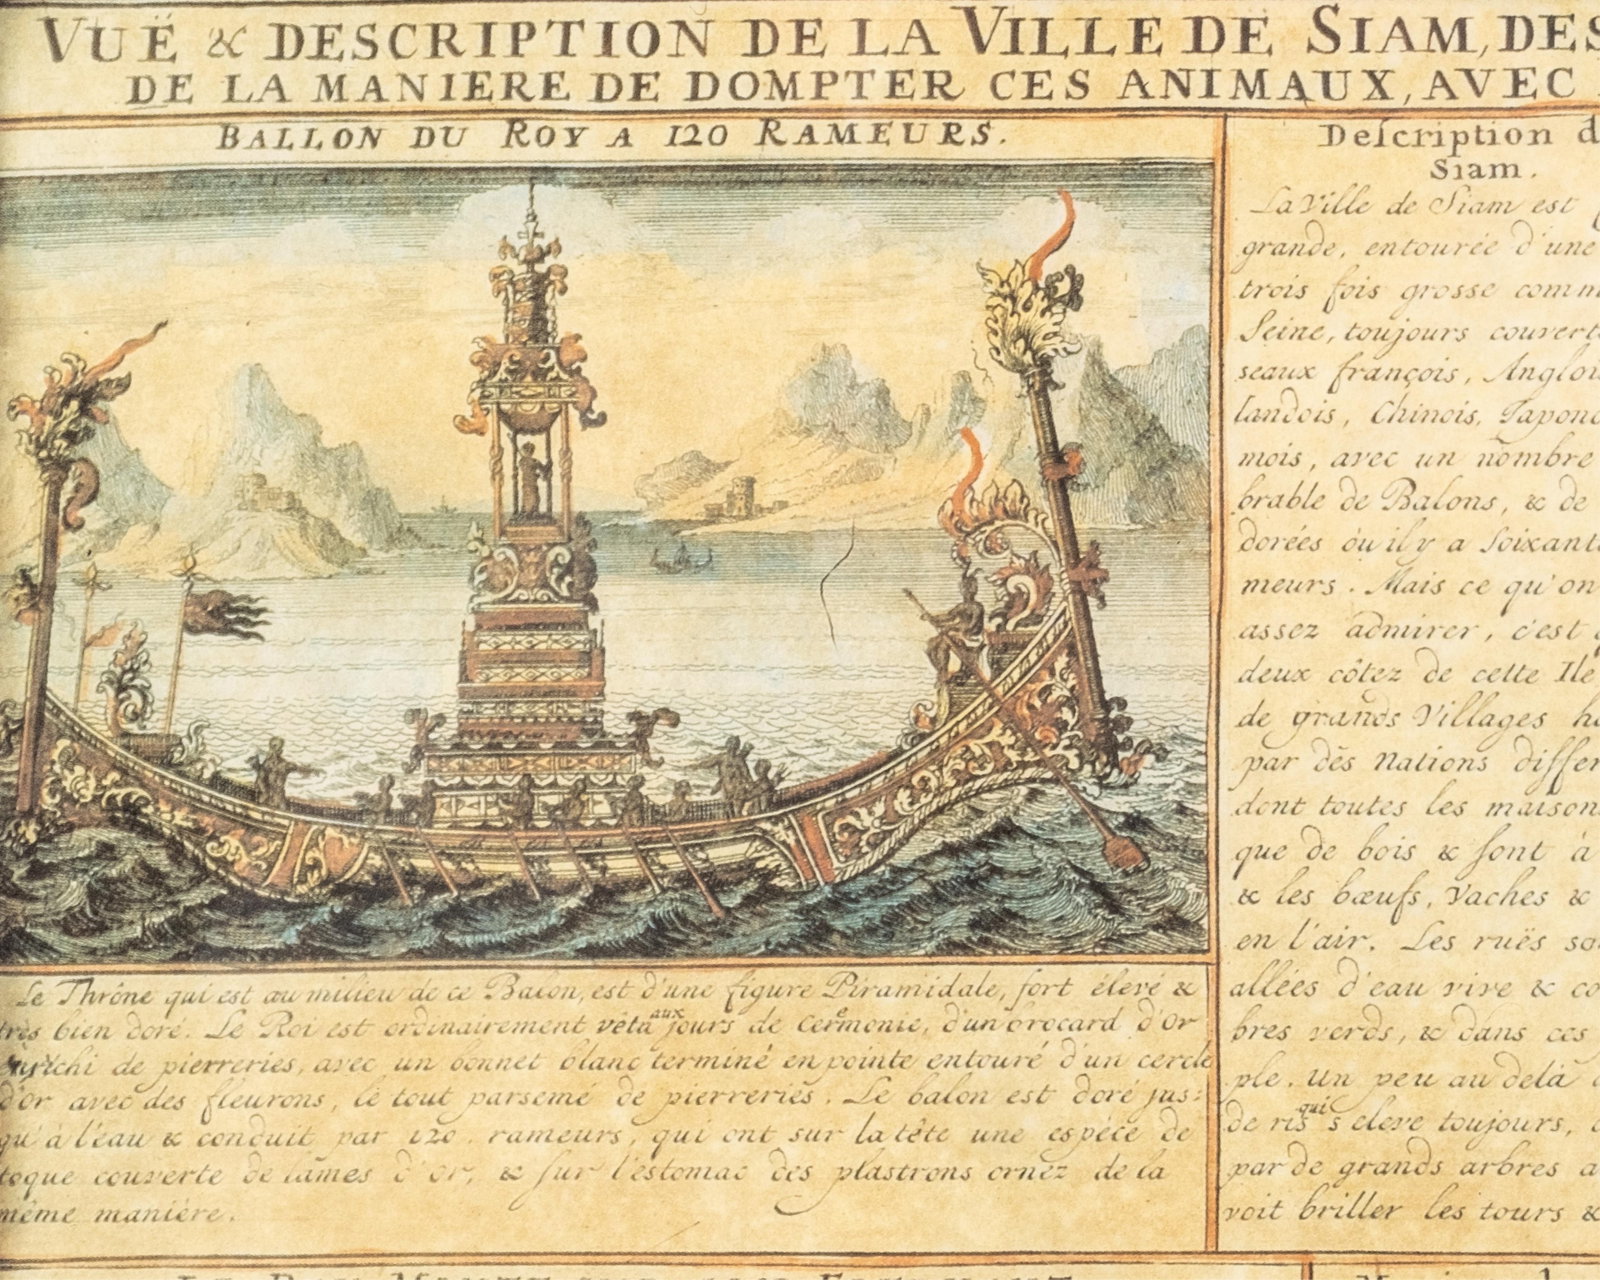 VUË & DESCRIPTION DE LA VILLE DE SIAM, DES
DE LA MANIERE DE DOMPTER CES ANIMAUX, AVEC
BALLON DU ROY A 120 RAMEURS.
Le Thrône qui est au milieu de ce Balon, est d'une figure Piramidale, fort élevé &
très bien doré. Le Roi est ordinairement vêtu aux jours de ceremonie, d'un brocard d'or
enrichi de pierreries, avec un bonnet blanc terminé en pointe entouré d'un cercle
d'or avec des fleurons, le tout parsemé de pierreries. Le balon est doré jus-
qu'à l'eau & conduit par 120. rameurs, qui ont sur la tête une espéce de
toque couverte de lames d'or, & sur l'estomac des plastrons ornez de la
même maniére.
Description d
Siam.
La Ville de Siam est
grande, entourée d'une
trois fois grosse comm
Seine, toujours couverte
seaux françois, Anglois
landois, Chinois, Japono
mois, avec un nombre
brable de Balons, & de
dorées où il y a soixante
meurs. Mais ce qu'on
assez admirer, c'est
deux côtez de cette Ile
de grands Villages ha
par des Nations differ
dont toutes les maisons
que de bois & sont à
& les bœufs, Vaches &
en l'air. Les ruës so
allées d'eau vive & co
bres verds, & dans ces
ple. Un peu au delà
de ris qui s'eleve toujours,
par de grands arbres a
voit briller les tours &